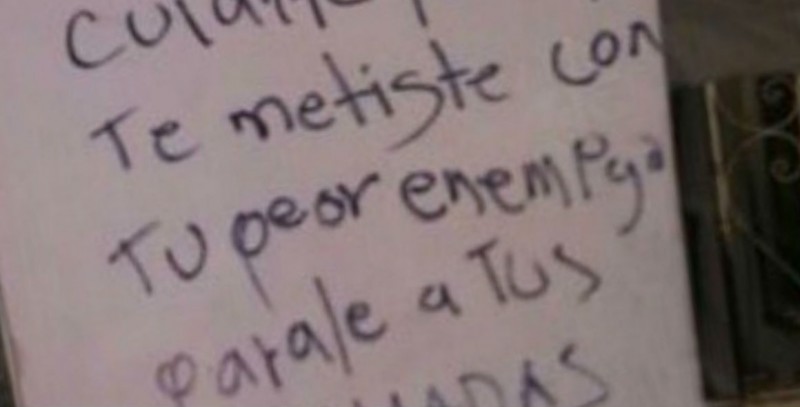 Te metiste con
Tu peor enemiga
parale a Tus